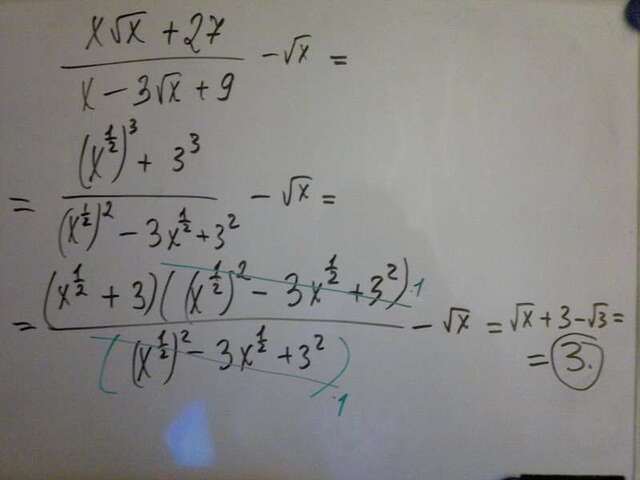 (x√x + 27)/(x − 3√x + 9) − √x =
= ((x^(1/2))^3 + 3^3)/((x^(1/2))^2 − 3x^(1/2) + 3^2) − √x =
= ((x^(1/2) + 3)((x^(1/2))^2 − 3x^(1/2) + 3^2) ·1)/(((x^(1/2))^2 − 3x^(1/2) + 3^2) ·1) − √x = √x + 3 − √3 =
= 3.